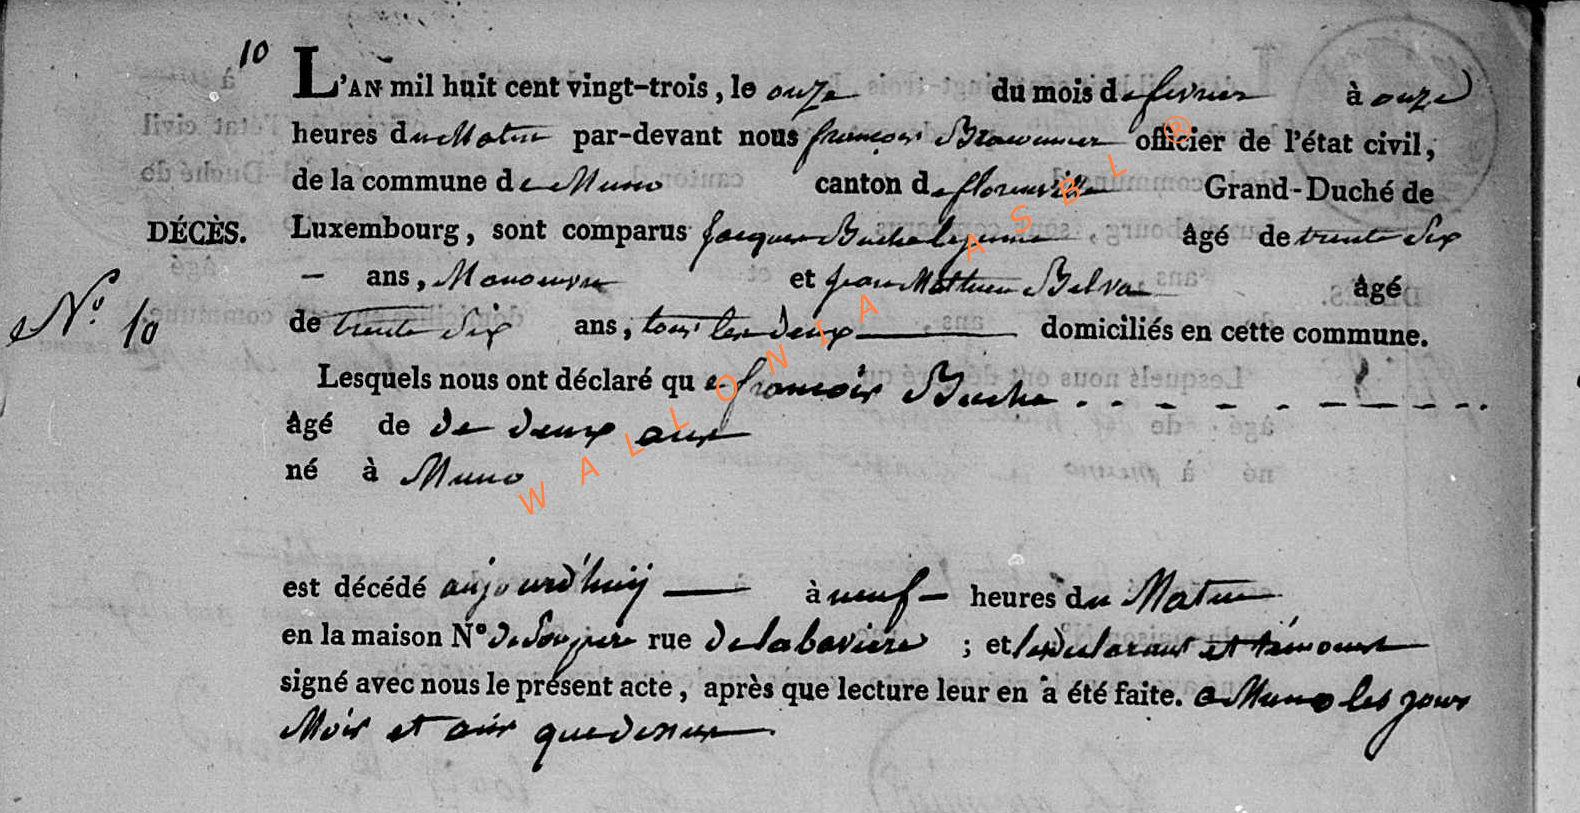 10
L'AN mil huit cent vingt-trois, le onze du mois de fevrier à onze
heures du Matin par-devant nous françois officier de l'état civil,
de la commune de Muno canton de florenville Grand-Duché de
DÉCÈS. Luxembourg, sont comparus Jacques Buche lejeune âgé de trente Six
— ans, Manoeuvre et jean Mathieu Belva âgé
N.° 10 de trente Six ans, tous les deux domiciliés en cette commune.
Lesquels nous ont déclaré que francois Buche
âgé de de deux ans
né à Muno
est décédé aujourd'huij à neuf heures du Matin
en la maison N° de Son pere rue de la baviere ; et les declarans et témoins
signé avec nous le présent acte, après que lecture leur en a été faite. a Muno les jour
Mois et an que dessus
WALLONIA ASBL ®